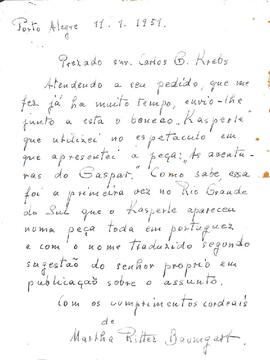 Porto Alegre 11.1.1951.
Prezado snr. Carlos G. Krebs
Atendendo a seu pedido, que me
fez já ha muito tempo, envio-lhe
junto a esta o boneco "Kasperle
que utilizei no espetaculo em
que apresentei a peça: As aventu-
ras do Gaspar. Como sabe, essa
foi a primeira vez no Rio Grande
do Sul que o Kasperle apareceu
numa peça toda em portuguez
e com o nome traduzido segundo
sugestão do senhor proprio em
publicação sobre o assunto.
Com os cumprimentos cordeais
de
Martha Ritter Baumgart.